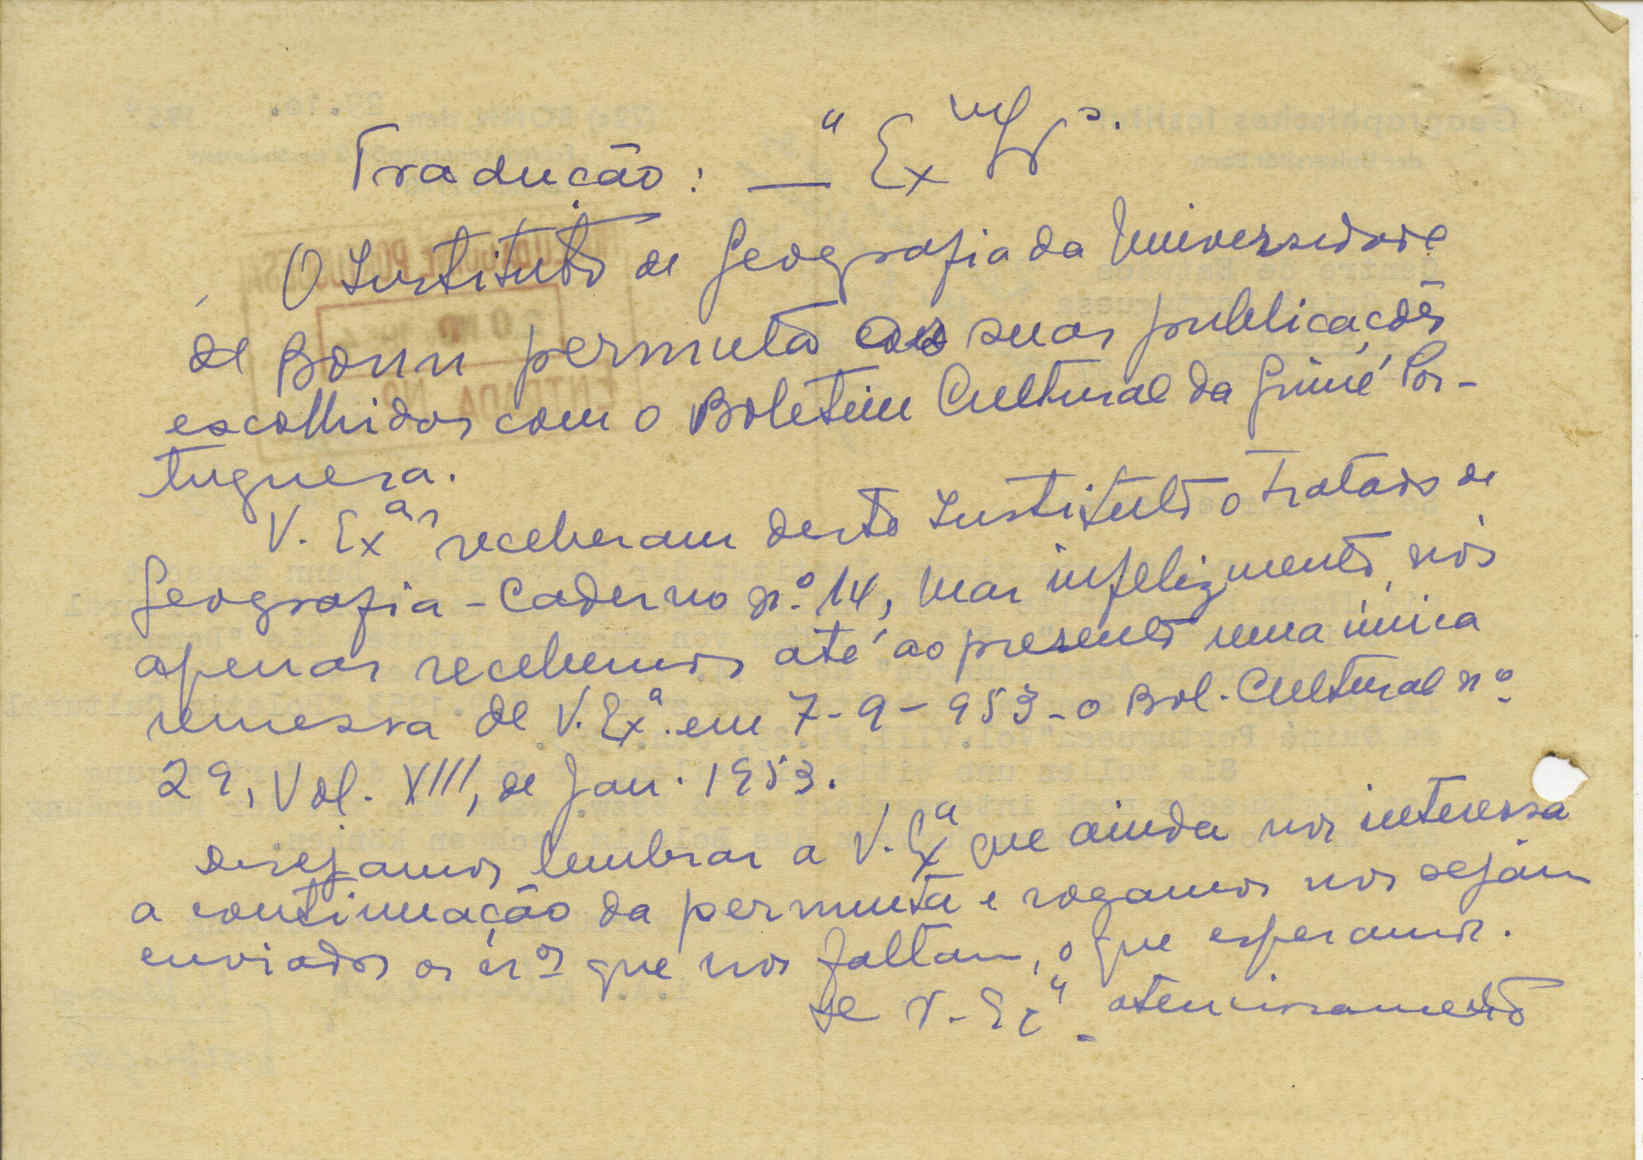 Tradução: — "Exmos Srs.
O Instituto de Geografia da Universidade
de Bonn permuta as suas publicações
escolhidas com o Boletim Cultural da Guiné Por-
tuguesa.
V. Exas receberam deste Instituto o Tratado de
Geografia - Caderno nº 14, mas infelizmente, nós
apenas recebemos até ao presente uma única
remessa de V. Exª. em 7-9-953 - o Bol. Cultural nº
29, Vol. VIII, de Jan. 1953.
Desejamos lembrar a V. Exª que ainda nos interessa
a continuação da permuta e rogamos nos sejam
enviados os nos que nos faltam, o que esperamos.
De V. Exª atenciosamente